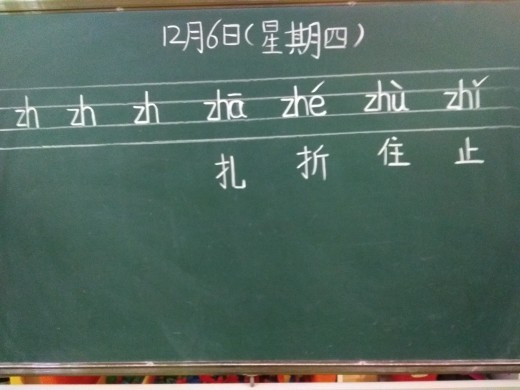 12月6日(星期四)
zh zh zh zhā zhé zhù zhǐ
扎 折 住 止